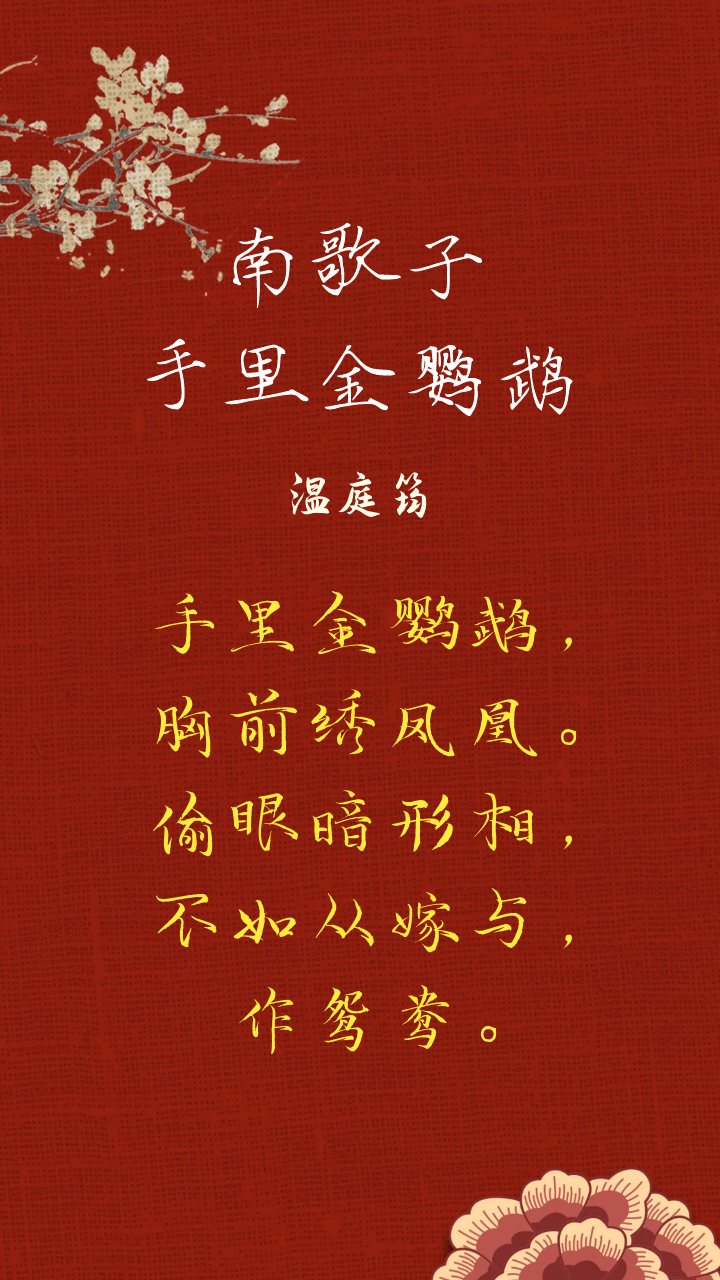 南歌子
手里金鹦鹉
温庭筠
手里金鹦鹉，
胸前绣凤凰。
偷眼暗形相，
不如从嫁与，
作鸳鸯。